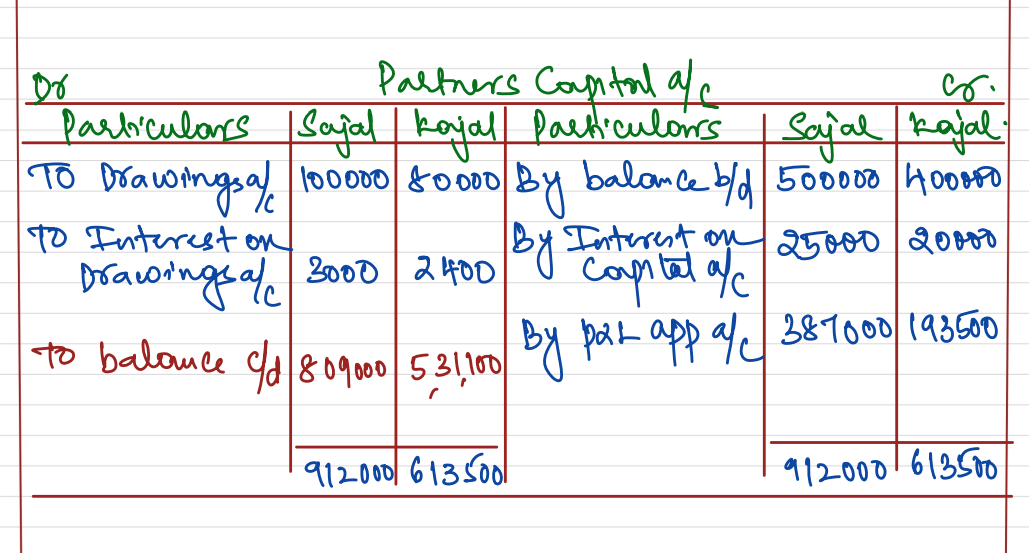 Dr Partners Capital a/c Cr.
Particulars Sajal Kajal Particulars Sajal Kajal.
To Drawings a/c 100000 80000 By balance b/d 500000 400000
To Interest on By Interest on 25000 20000
Drawings a/c 3000 2400 Capital a/c
By P&L app a/c 387000 193500
To balance c/d 809000 531,100
912000 613500 912000 613500